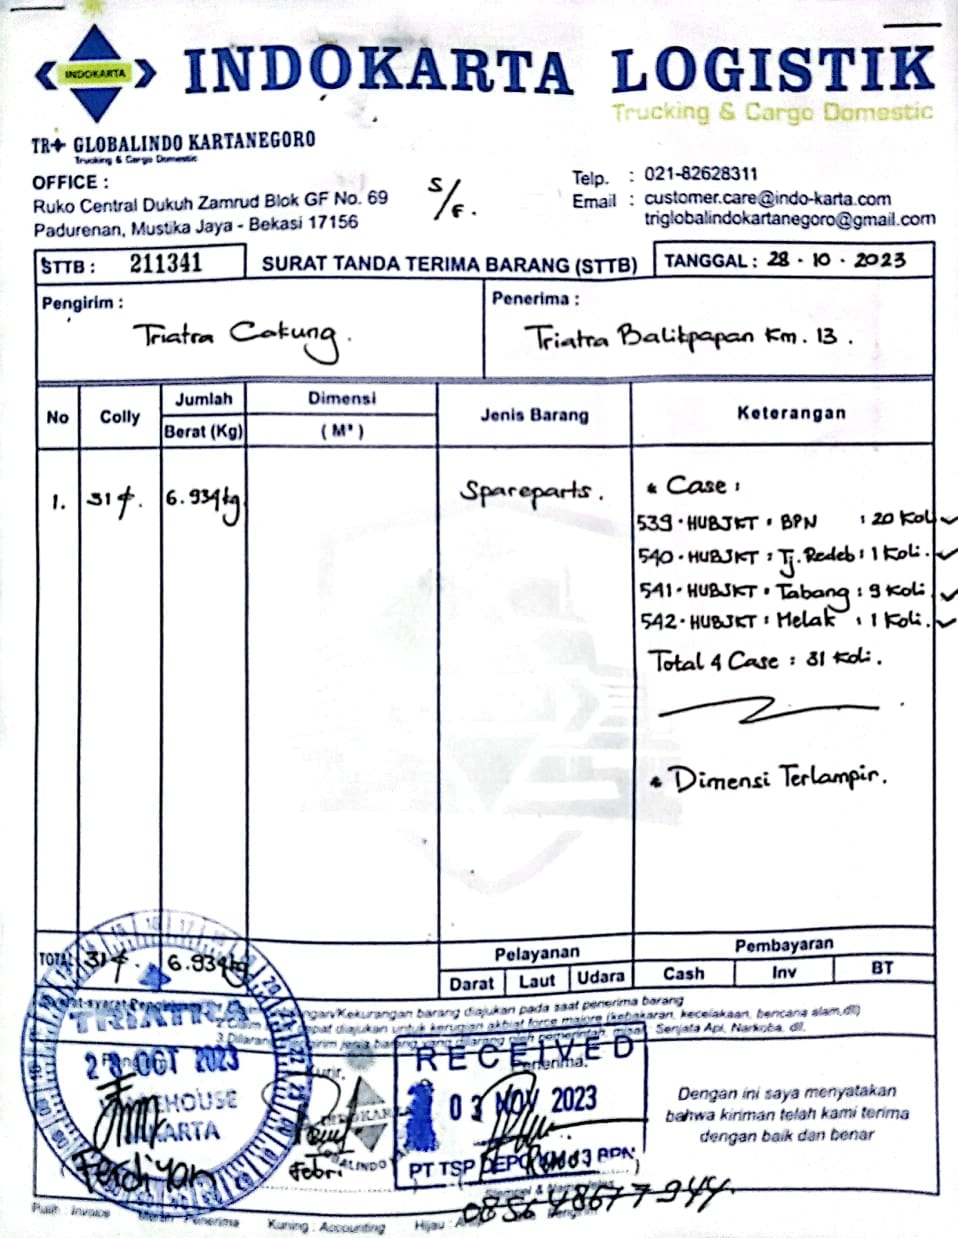 INDOKARTA
INDOKARTA LOGISTIK
Trucking & Cargo Domestic
TR GLOBALINDO KARTANEGORO
Trucking & Cargo Domestic
OFFICE :
Ruko Central Dukuh Zamrud Blok GF No. 69
Padurenan, Mustika Jaya - Bekasi 17156
S/F.
Telp. : 021-82628311
Email : customer.care@indo-karta.com
triglobalindokartanegoro@gmail.com
STTB : 211341
SURAT TANDA TERIMA BARANG (STTB)
TANGGAL : 28 - 10 - 2023
Pengirim :
Triatra Cakung.
Penerima :
Triatra Balikpapan Km. 13.
No Colly Jumlah Berat (Kg) Dimensi (M³) Jenis Barang Keterangan
1. 31 6.934kg Spareparts.
Case :
539-HUBJKT : BPN : 20 Koli
540-HUBJKT : Tj. Redeb : 1 Koli.
541-HUBJKT : Tabang : 9 Koli
542-HUBJKT : Melak : 1 Koli.
Total 4 Case : 31 Koli.
Dimensi Terlampir.
TOTAL 31 6.934kg
Pelayanan
Darat Laut Udara
Pembayaran
Cash Inv BT
/Kekurangan barang diajukan pada saat penerima barang
diajukan untuk kerugian akbiat force majore (kebakaran, kecelakaan, bencana alam,dll)
3.Dilarang jenis barang yang dilarang oleh pemerintah, misal : Senjata Api, Narkoba, dll.
TRIATRA
28 OCT 2023
WAREHOUSE
JAKARTA
Ferdiyan
Kurir,
Febri
Penerima.
RECEIVED
03 NOV 2023
PT TSP DEPO KM 13 BPN
085648677944
Dengan ini saya menyatakan
bahwa kiriman telah kami terima
dengan baik dan benar
Putih : Invoice Merah : Penerima Kuning : Accounting Hijau :